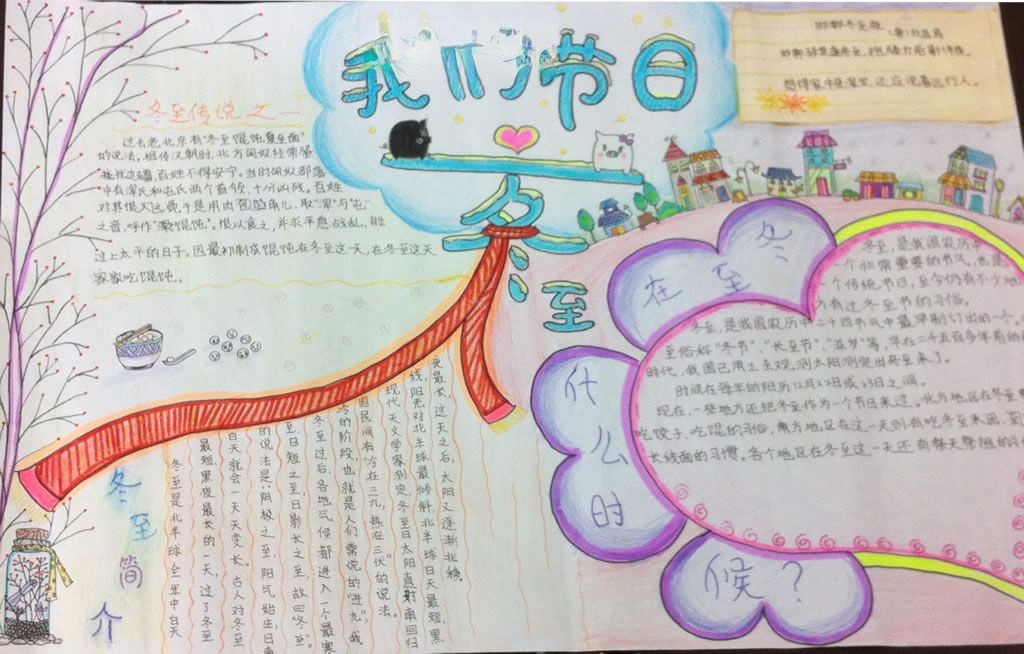 我们节日
冬至
邯郸冬至夜
(唐)白居易
邯郸驿里逢冬至,抱膝灯前影伴身。
想得家中夜深坐,还应说着远行人。
冬至传说之一
过去老北京有"冬至馄饨夏至面"
的说法。相传汉朝时,北方匈奴经常骚
扰边疆,百姓不得安宁。当时匈奴部落
中有浑氏和屯氏两个首领,十分凶残。百姓
对其恨之入骨,于是用肉馅包角儿,取"浑"与"屯"
之音,呼作"馄饨"。恨以食之,并求平息战乱,能
过上太平的日子。因最初制成馄饨在冬至这一天,在冬至这天
家家吃馄饨。
在冬至
什么时
候?
冬至,是我国农历中
一个非常重要的节气,也是
个传统节日,至今仍有不少地
方有过冬至节的习俗。
冬至,是我国农历中二十四节气中最早制订出的一个。
至俗称"冬节"、"长至节"、"亚岁"等,早在二千五百多年前的
时代,我国已用土圭观测太阳测定出冬至来了。
时间在每年的阳历12月22日或23日之间。
现在,一些地方还把冬至作为一个节日来过。北方地区在冬至
吃饺子、吃馄饨的习俗,南方地区在这一天则有吃冬至米团、
长线面的习惯。各个地区在冬至这一天还有祭天祭祖的
冬至简介
冬至是北半球全年中白天
最短、黑夜最长的一天,过了冬至
白天就会一天天变长。古人对冬至
的说法是:阴极之至,阳气始生,日南
至,日短之至,日影长之至,故曰"冬至"。
冬至过后,各地气候都进入一个最寒
冷的阶段,也就是人们常说的"进九",我
国民间有"冷在三九,热在三伏"的说法。
现代天文学家测定,冬至日太阳直射南回归
线,阳光对北半球最倾斜,北半球白天最短,黑
夜最长,这天之后,太阳又逐渐北移。